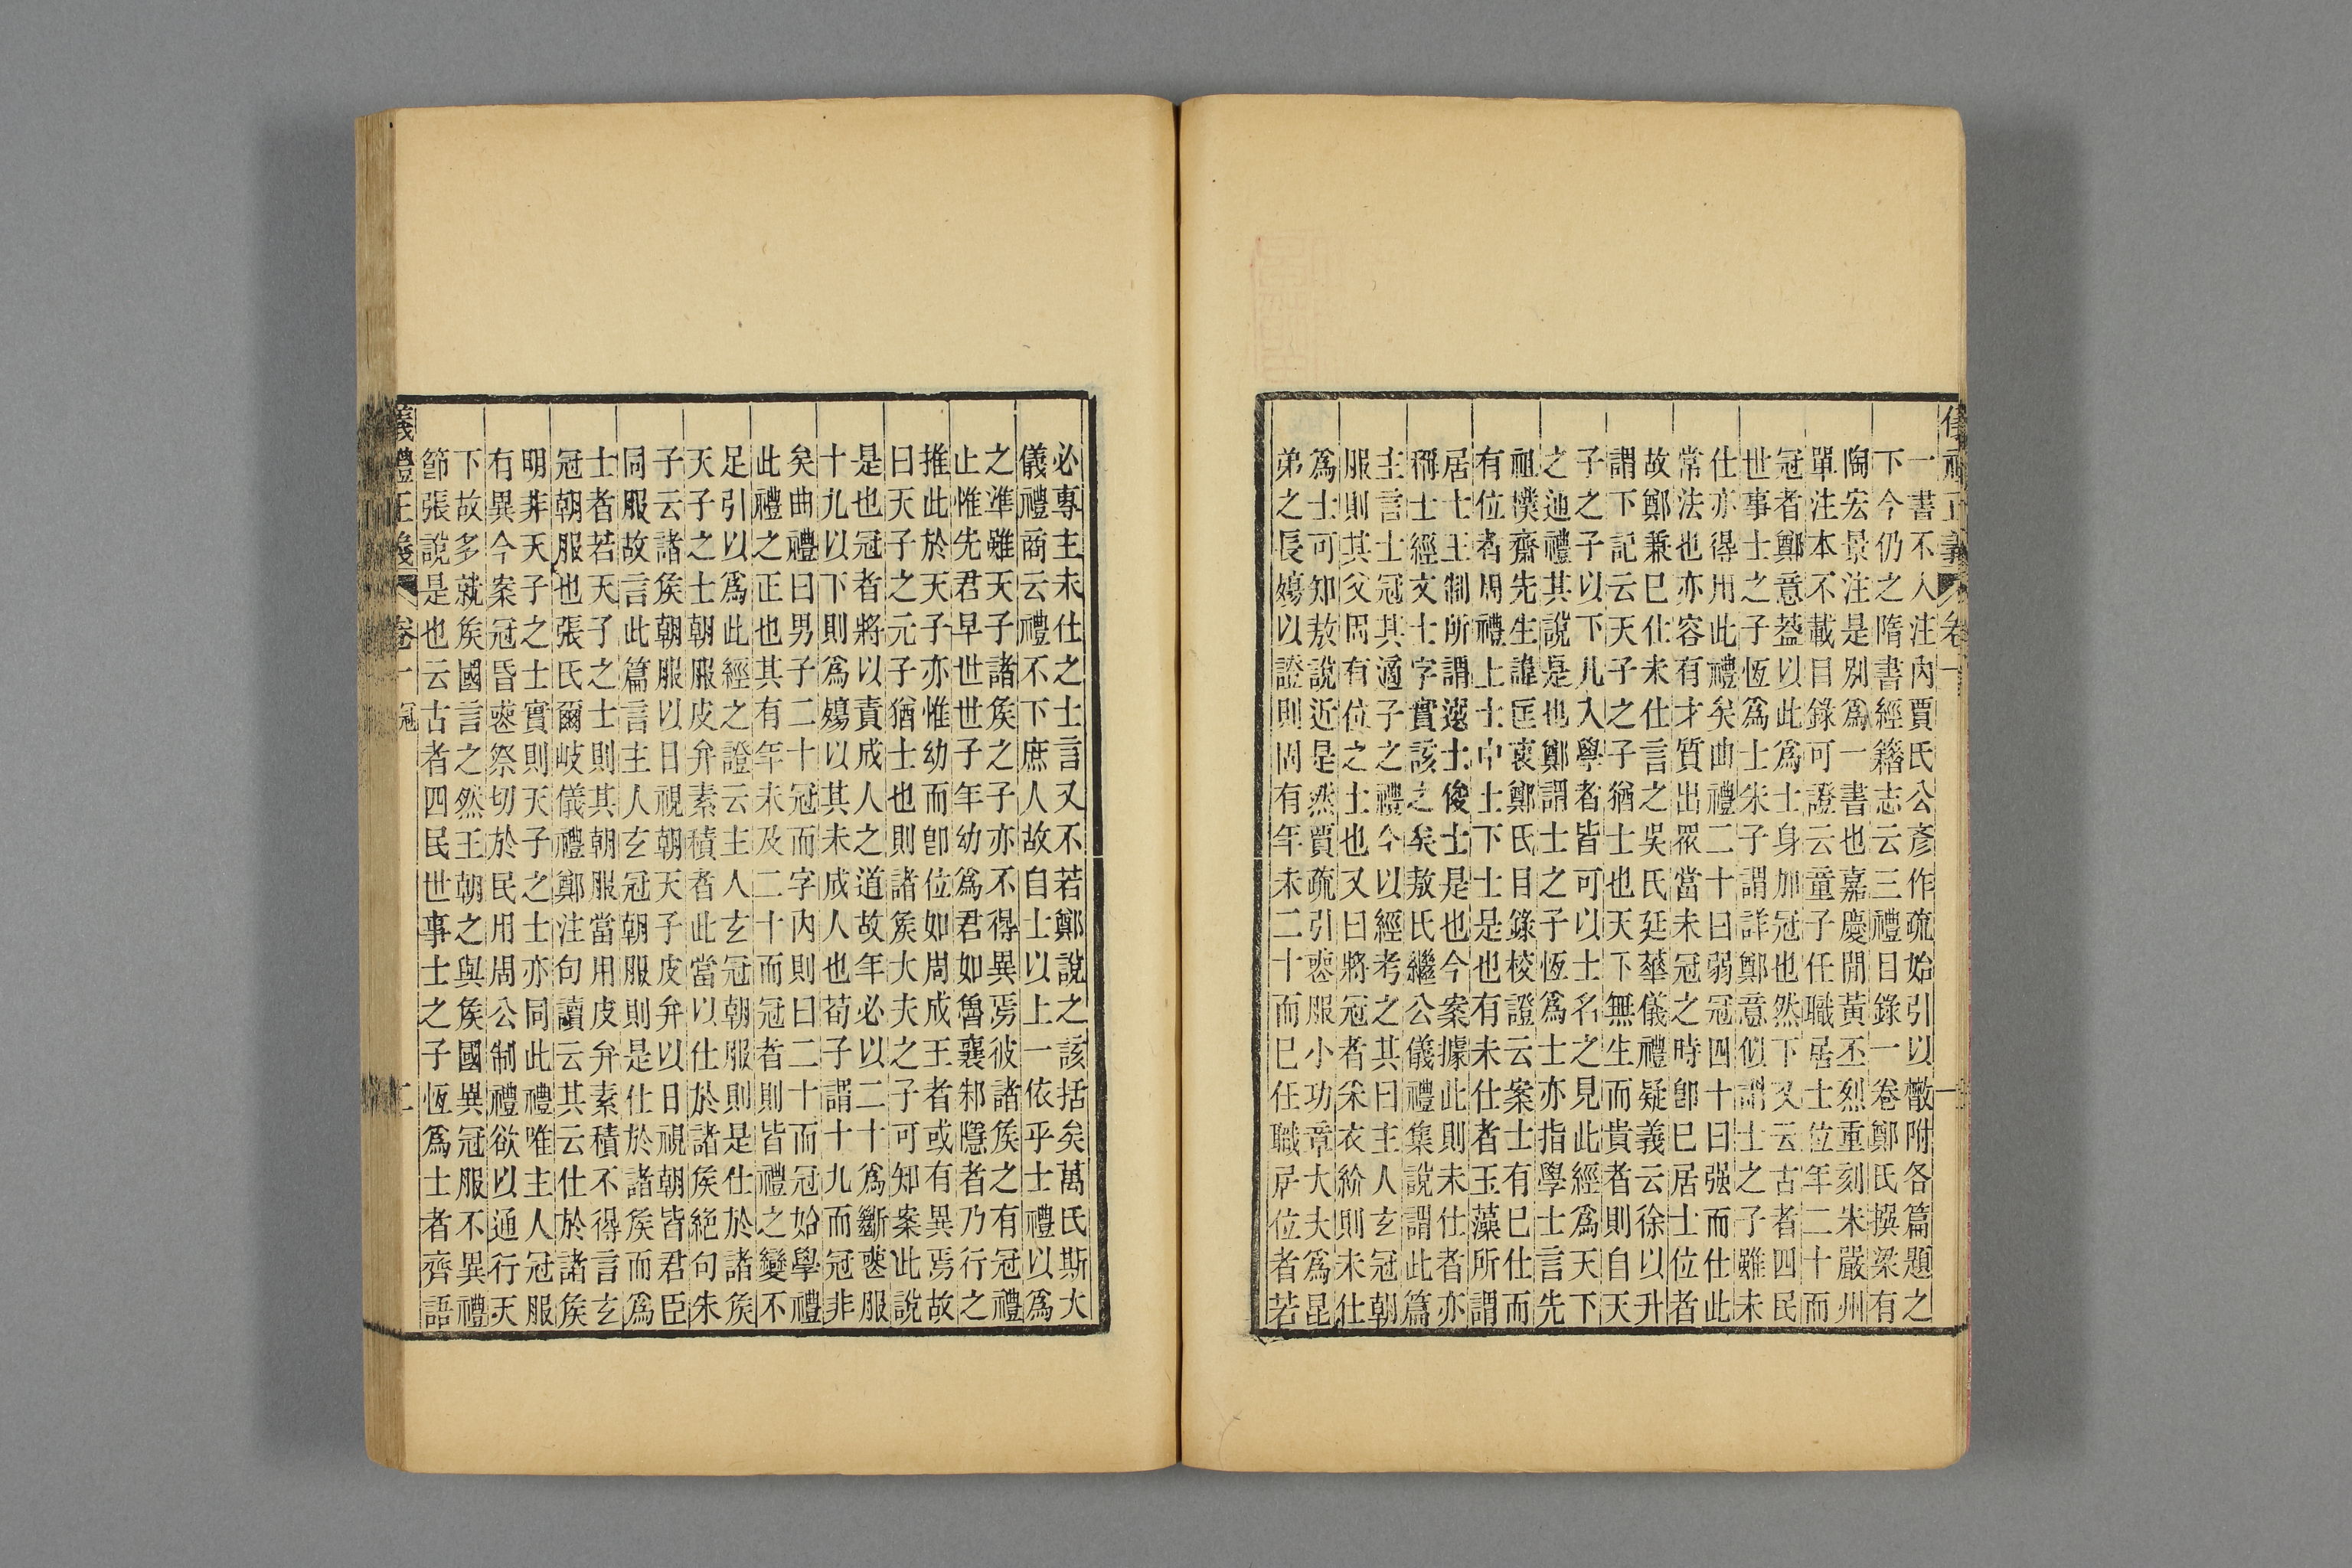 一書不入注內賈氏公彥作疏始引以㪚附各篇題之
下今仍之隋書經籍志云三禮目錄一卷鄭氏撰梁有
陶宏景注是別爲一書也嘉慶閒黃丕烈重刻宋嚴州
單注本不載目錄可證云童子任職居士位年二十而
冠者鄭意葢以此爲士身加冠也然下又云古者四民
世事士之子恆爲士朱子謂詳鄭意似謂士之子雖未
仕亦得用此禮矣曲禮二十曰弱冠四十曰强而仕此
常法也亦容有才質出眾當未冠之時卽已居士位者
故鄭兼已仕未仕言之吳氏廷華儀禮疑義云徐以升
謂下記云天子之子猶士也天下無生而貴者則自天
子之子以下凡入學者皆可以士名之見此經爲天下
之通禮其說是也鄭謂士之子恆爲士亦指學士言先
祖樸齋先生諱匡衷鄭氏目錄校證云案士有已仕而
有位者周禮上士中士下士是也有未仕者玉藻所謂
居士王制所謂選士俊士是也今案據此則未仕者亦
稱士經文士字實該之矣敖氏繼公儀禮集說謂此篇
主言士冠其適子之禮今以經考之其曰主人玄冠朝
服則其父固有位之士也又曰將冠者采衣紒則未仕
爲士可知敖說近是然賈疏引喪服小功章大夫爲昆
弟之長殤以證則固有年未二十而已任職居位者若
必專主未仕之士言又不若鄭說之該括矣萬氏斯大
儀禮商云禮不下庶人故自士以上一依乎士禮以爲
之準雖天子諸矦之子亦不得異焉彼諸矦之有冠禮
止惟先君早世世子年幼爲君如魯襄邾隱者乃行之
推此於天子亦惟幼而卽位如周成王者或有異焉故
曰天子之元子猶士也則諸矦大夫之子可知案此說
是也冠者將以責成人之道故年必以二十爲斷喪服
十九以下則爲殤以其未成人也荀子謂十九而冠非
矣曲禮曰男子二十冠而字內則曰二十而冠始學禮
此禮之正也其有年未及二十而冠者則皆禮之變不
足引以爲此經之證云主人玄冠朝服則是仕於諸矦
天子之士朝服皮弁素積者此當以仕於諸矦絕句朱
子云諸矦朝服以日視朝天子皮弁以日視朝皆君臣
同服故言此篇言主人玄冠朝服則是仕於諸矦而爲
士者若天子之士則其朝服當用皮弁素積不得言玄
冠朝服也張氏爾岐儀禮鄭注句讀云其云仕於諸矦
明非天子之士實則天子之士亦同此禮唯主人冠服
有異今案冠昏喪祭切於民用周公制禮欲以通行天
下故多就矦國言之然王朝之與矦國異冠服不異禮
節張說是也云古者四民世事士之子恆爲士者齊語
儀禮正義 卷一 冠 二